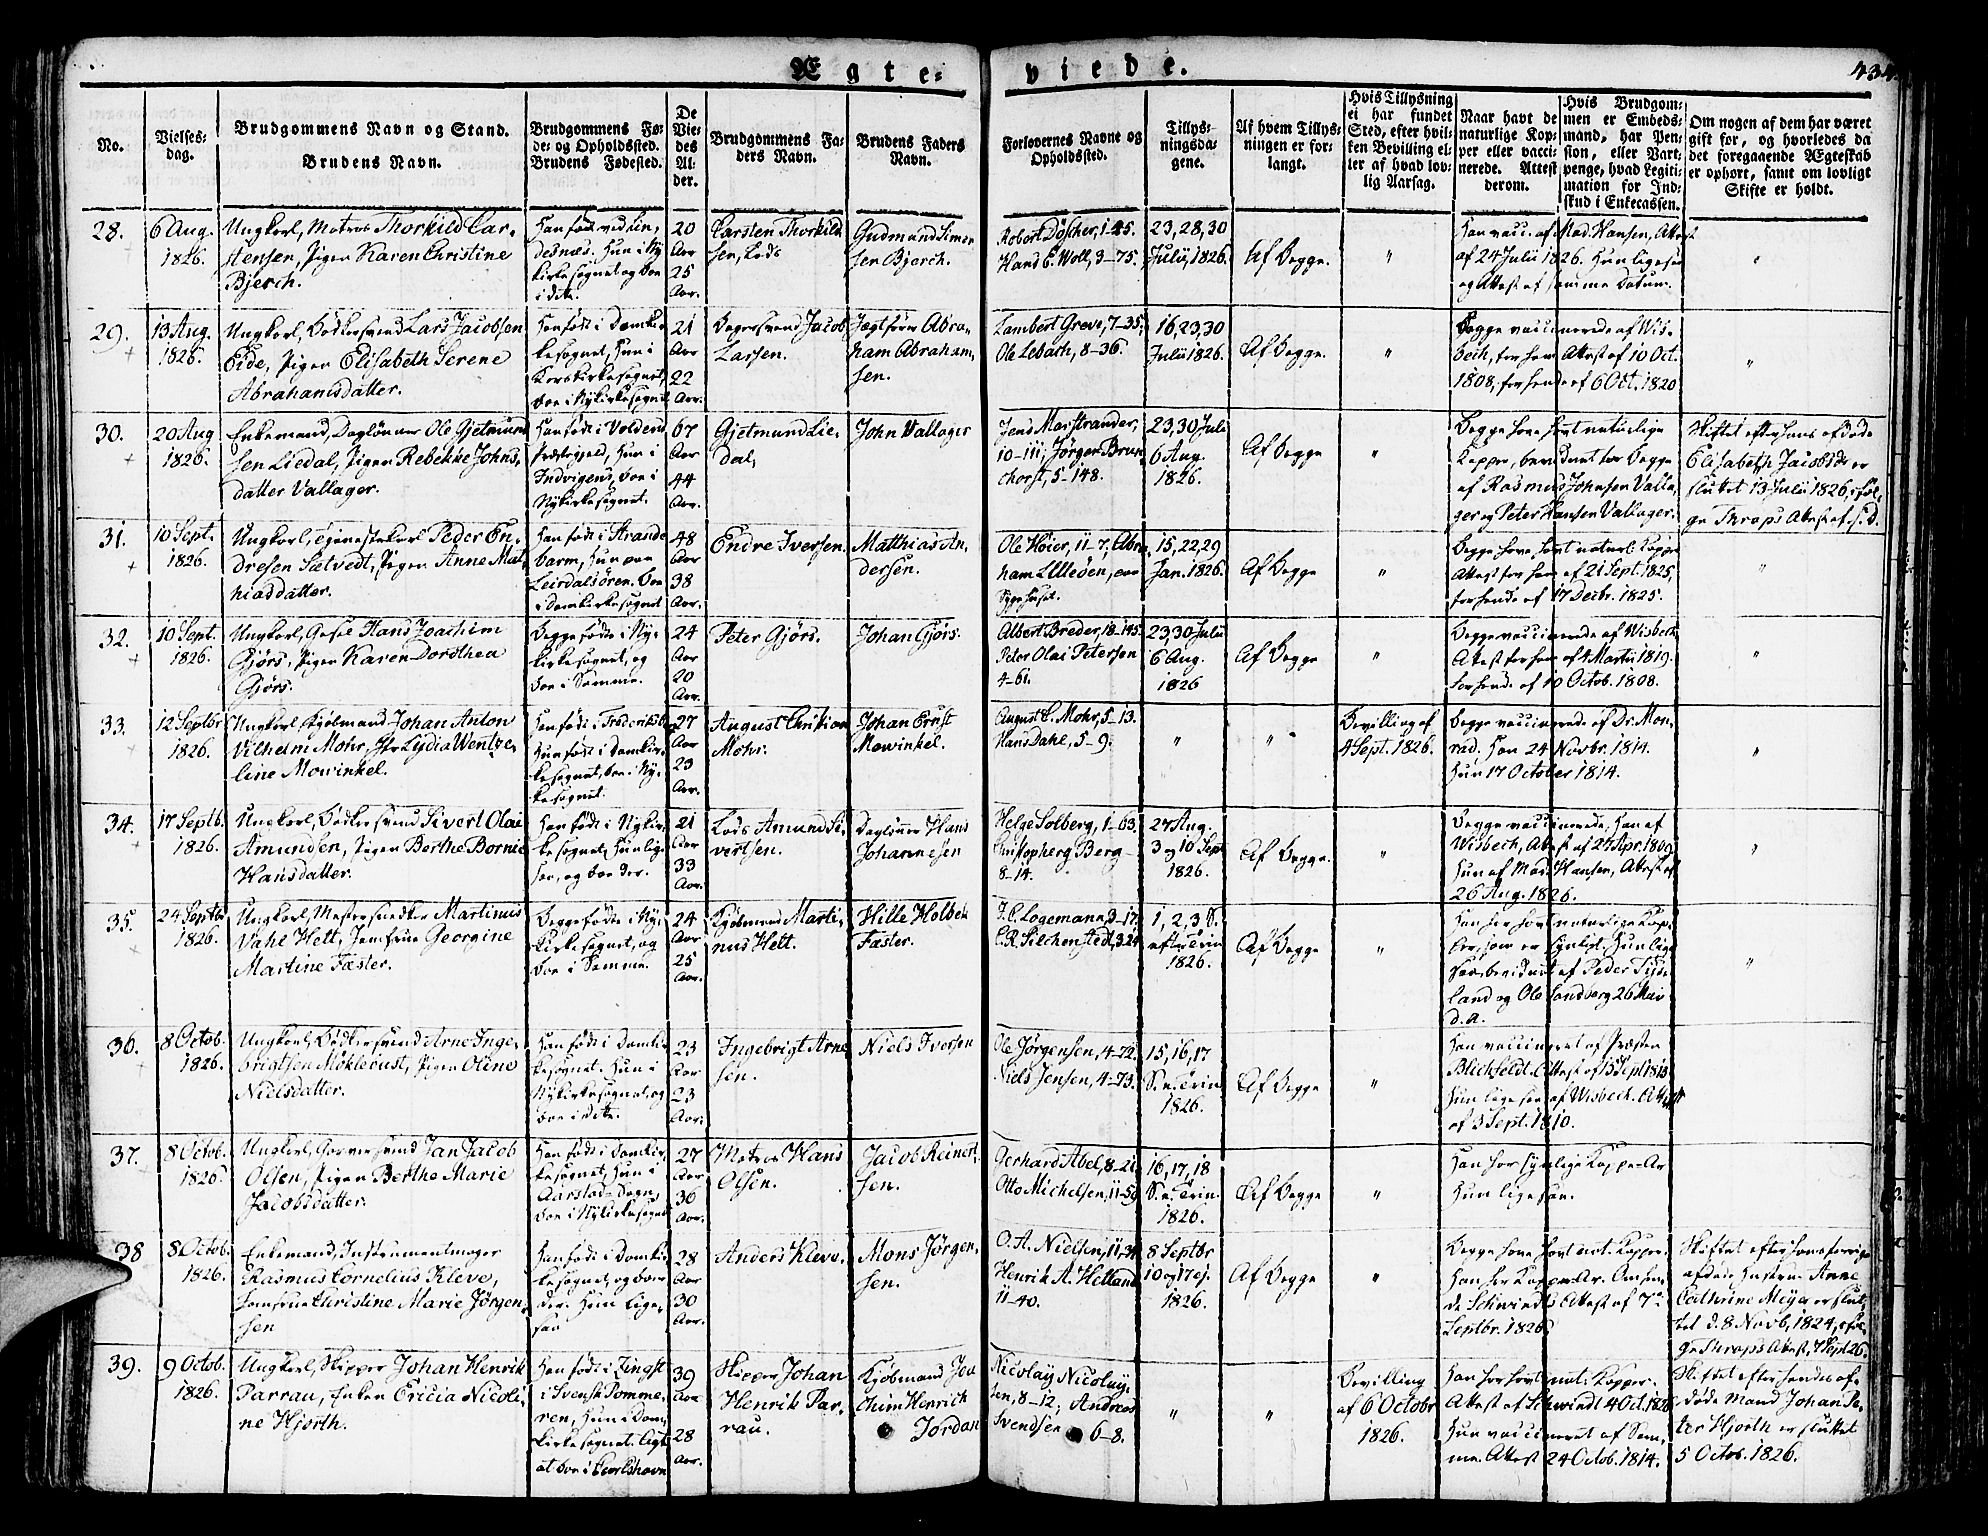 Ægte-viede.
434.
No.
Vielses-
dag.
Brudgommens Navn og Stand.
Brudens Navn.
Brudgommens Fø-
de- og Opholdssted.
Brudens Fødested.
De
Vie-
des
Al-
der.
Brudgommens Fa-
ders Navn.
Brudens Faders
Navn.
Forlovernes Navne og
Opholdssted.
Tillys-
ningsda-
gene.
Af hvem Tillys-
ningen er for-
langt.
Hvis Tillysning
ei har fundet
Sted, efter hvil-
ken Bevilling el-
ler af hvad lov-
lig Aarsag.
Naar havt de
naturlige Kop-
per eller vacci-
nerede. Attest
derom.
Hvis Brudgom-
men er Embeds-
mand, har Pen-
sion, eller Vart-
penge, hvad Legiti-
mation for Ind-
skud i Enkecassen.
Om nogen af dem har været
gift før, og hvorledes da
det foregaaende Ægteskab
er ophørt, samt om lovligt
Skifte er holdt.
28.
6 Aug.
1826.
Ungkarl, Matros Thorkild Car-
stensen, Pigen Karen Christine
Bjerch.
Han født ved Lin-
desnæs. Hun i Ny-
kirkesognet og boe
i dito.
20
Aar
25
Aar.
Carsten Thorkild-
sen, Lods
Gudmund Simon-
sen Bjerch.
Robert Döscher, 1-45.
Hans C. Woll, 3-75.
23, 28, 30
Julii, 1826.
Af Begge.
"
Han vacc. af Mad. Hansen, Attest
af 24 Julii 1826. Hun ligesaa
og Attest af samme Datum.
"
29.
13 Aug.
1826.
Ungkarl, Bødkersvend Lars Jacobsen
Eide, Pigen Elisabeth Serene
Abrahamsdatter.
Han født i Domkir-
kesognet, Hun i
Korskirkesognet,
boe i Nykirkesognet
21
Aar
22
Aar.
Bagersvend Jacob
Larsen.
Jægtfører Abra-
ham Abraham-
sen.
Lambert Greve, 7-35.
Ole Lebach, 8-36.
16, 23, 30
Julii 1826.
Af Begge.
"
Begge vaccinerede af Wis-
bech, for ham Attest af 10 Oct.
1808, for hende af 6 Oct. 1820
"
30.
20 Aug
1826.
Enkemand, Daglønner Ole Gjetmund-
sen Liedal, Pigen Rebekke Johns-
datter Vallager.
Han født i Voldens
Præstegjeld, Hun i
Indvigens, boe i
Nykirkesognet.
67
Aar
44
Aar.
Gjetmund Lie-
dal,
John Vallager
Jens Marstrander,
10-111, Jørgen Brun-
chorst, 5-148.
23, 30 Juli
6 Aug.
1826.
Af Begge
"
Begge have havt naturlige
Kopper, bevidnet for Begge
af Rasmus Johnsen Valla-
ger og Peter Hansen Vallager.
Skiftet efter hans afdøde
Elisabeth Jacobsdr er
sluttet 13 Julii 1826, iføl-
ge Thraps Attest af s. D.
31.
10 Sept.
1826.
Ungkarl, Tjenestekarl Peder En-
dresen Sætvedt, Pigen Anne Mat-
hiasdatter.
Han født i Strande-
barm, Hun paa
Leirdalsören. boe
i Domkirkesognet
48
Aar
38
Aar.
Endre Iversen.
Matthias An-
dersen.
Ole Höier, 11-7, Abra-
ham Lilleöen, paa
Sygehuset.
15, 22, 29
Jan. 1826.
Af Begge
"
Begge have havt naturl. Kopper
Attest for ham af 21 Sept. 1825,
for hende af 17 Decbr. 1825.
"
32.
10 Sept.
1826.
Ungkarl, Gesel Hans Joachim
Gjörs, Pigen Karen Dorothea
Gjörs.
Begge fødte i Ny-
kirkesognet, og
boe i Samme.
24
Aar
20
Aar.
Peter Gjörs.
Johan Gjörs.
Albert Breder, 18-145.
Peter Olai Petersen
4-61.
23, 30 Julii
6 Aug.
1826
Af Begge
"
Begge vaccinerede af Wisbech,
Attest for ham af 4 Martii 1819.
for hende af 10 Octob. 1808.
"
33.
12 Septbr
1826.
Ungkarl, Kjøbmand Johan Anton
Vilhelm Mohr, Jfr Lydia Wentze-
line Mowinkel.
Han født i Frederiksb.
Hun født i Domkir-
kesognet, boe i Ny-
kesognet.
27
Aar
23
Aar.
August Christian
Mohr.
Johan Ernst
Mowinkel.
August C. Mohr, 5-13.
Hans Dahl, 5-9.
"
"
Bevilling af
4 Sept. 1826.
Begge vaccinerede af Dr. Mon-
rad. Han 24 Novbr. 1814.
Hun 17 October 1814.
"
34.
17 Septb.
1826.
Ungkarl, Bødkersvend Sivert Olai
Amundsen, Pigen Berthe Bornie
Hansdatter.
Han født i Nykir-
kesognet, Hun lige-
saa, og boe der.
21
Aar
33
Aar.
Lods Amund Si-
vertsen.
Daglønner Hans
Johannesen
Helge Solberg, 1-63.
Christopher Berg
8-14.
27 Aug.
3 og 10 Sept
1826.
Af Begge.
"
Begge vaccinerede. Han af
Wisbech, Attest af 27 Apr. 1809.
Hun af Mad. Hansen, Attest af
26 Aug. 1826.
"
35.
24 Septbr
1826.
Ungkarl, Mestersnedker Martinus
Vahl Hett, Jomfrue Georgine
Martine Fæster.
Begge fødte i Ny-
kirkesognet, og
boe i Samme.
24
Aar
25
Aar.
Kjøbmand Marti-
nus Hett.
Hille Holbek
Fæster.
J. C. Logemann, 3-17.
C. R. Silchenstedt, 3.24
1, 2, 3 S.
efter Trin
1826.
Af Begge
"
Han har havt naturlige Kop-
per, som er synligt. Hun lige-
saa, bevidnet af Peder Tijs-
land og Ole Sandberg 26 Mai
d. a.
"
36.
8 Octob.
1826.
Ungkarl, Bødkersvend Arne Inge-
brigtsen Möklebust, Pigen Oline
Nielsdatter.
Han født i Domkir-
kesognet. Hun i
Nykirkesognet, og
boe i dito.
23
Aar
23
Aar.
Ingebrigt Arne-
sen.
Niels Iversen
Ole Jörgensen, 4-72.
Niels Jensen, 4-73.
15, 16, 17
S. e. Trin.
1826.
Af Begge
"
Han vaccineret af Præsten
Blichfeldt. Attest af 15 Sept. 1813.
Hun ligesaa af Wisbech. Attest
af 3 Sept. 1810.
37.
8 Octob.
1826.
Ungkarl, Garversvend Jan Jacob
Olsen, Pigen Berthe Marie
Jacobsdatter.
Han født i Domkir-
kesognet, Hun i
Aarstad-Sogn,
boe i Nykirkesognet
27
Aar
36
Aar.
Matros Hans
Olsen.
Jacob Reinert-
sen.
Gerhard Abel, 8-21.
Otto Michelsen, 11-59
16, 17, 18
S. e. Trin.
1826.
Af Begge
"
Han har synlige Kopper Ar
Hun ligesaa.
38
8 Octob.
1826.
Enkemand, Instrumentmager
Rasmus Cornelius Kleve,
Jomfrue Christine Marie Jörgen-
sen
Han født i Domkir-
kesognet, og boer
der. Hun lige-
saa
28
Aar
30
Aar.
Anders Kleve.
Mons Jörgen-
sen.
O. A. Nielsen, 11-31
Henrik A. Helland
11-40.
8 Septbr
10 og 17 ej.
1826.
Af Begge
"
Begge have havt nat. Kopper.
Han har Kopper Ar. Om hen-
de Schwindts Attest af 7de
Septbr. 1826.
Skiftet efter hans forrige
afdøde Hustrue Anne
Cathrine Meyer er slut-
tet d. 8 Novb. 1824, iføl-
ge Thraps Attest, 7 Sept 26.
39.
9 Octob.
1826.
Ungkarl, Skipper Johan Henrik
Parrau, Enken Ericia Nicoli-
ne Hjorth.
Han født i Zingst
i Svensk Pomme-
ren, Hun i Dom-
kirkesognet. Agt-
at boe i Carlshavn
39
Aar
28
Aar.
Skipper Johan
Henrik Par-
rau.
Kjøbmand Joa-
chim Henrich
Jordan
Nicolay Nicolay-
sen, 8-12, Andreas
Svendsen 6-8.
"
"
Bevilling
af 6 Octobr
1826.
Han har havt nat. Kopper.
Attest af Schwindt 4 Oct. 1826
Hun vaccineret af Sam-
me. Attest 24 Octob. 1814.
Skiftet efter hendes af-
døde Mand Johan Pe-
ter Hjorth er sluttet
5 Octob. 1826.